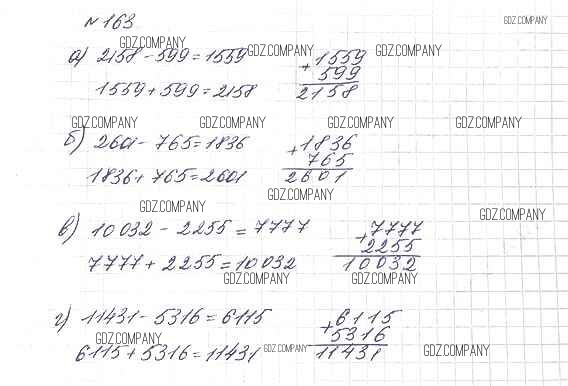 № 163
GDZ.COMPANY
GDZ.COMPANY GDZ.COMPANY GDZ.COMPANY
а) 2158 - 599 = 1559
1559 + 599 = 2158
+ 1559
599
2158
GDZ.COMPANY GDZ.COMPANY GDZ.COMPANY GDZ.COMPANY
б) 2601 - 765 = 1836
1836 + 765 = 2601
+ 1836
765
2601
GDZ.COMPANY
GDZ.COMPANY GDZ.COMPANY
в) 10032 - 2255 = 7777
7777 + 2255 = 10032
+ 7777
2255
10032
GDZ.COMPANY GDZ.COMPANY
г) 11431 - 5316 = 6115
6115 + 5316 = 11431
+ 6115
5316
11431
GDZ.COMPANY GDZ.COMPANY GDZ.COMPANY